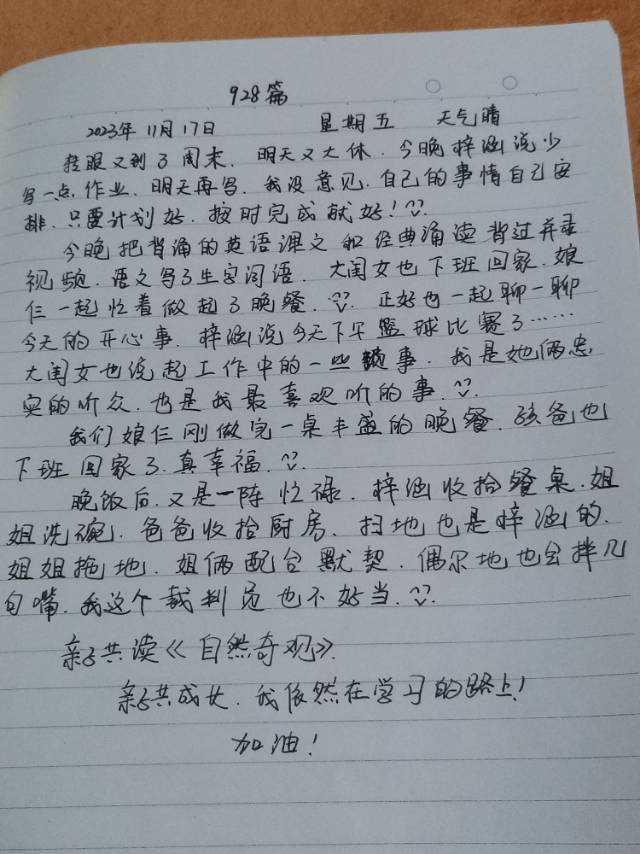 928篇
2023年11月17日 星期五 天气晴
转眼又到了周末.明天又大休.今晚梓涵说少
写一点.作业.明天再写.我没意见.自己的事情自己安
排.只要计划好.按时完成就好!
今晚把背诵的英语课文和经典诵读背过并录
视频.语文写了生字词语.大闺女也下班回家.娘
仨一起忙着做起了晚餐.正好也一起聊一聊
今天的开心事.梓涵说今天下午篮球比赛了……
大闺女也说起工作中的一些琐事.我是她俩忠
实的听众.也是我最喜欢听的事.
我们娘仨刚做完一桌丰盛的晚餐.孩爸也
下班回家了.真幸福.
晚饭后.又是一阵忙碌.梓涵收拾餐桌.姐
姐洗碗.爸爸收拾厨房.扫地也是梓涵的.
姐姐拖地.姐俩配合默契.偶尔地也会拌几
句嘴.我这个裁判员也不好当.
亲子共读《自然奇观》.
亲子共成长.我依然在学习的路上!
加油!